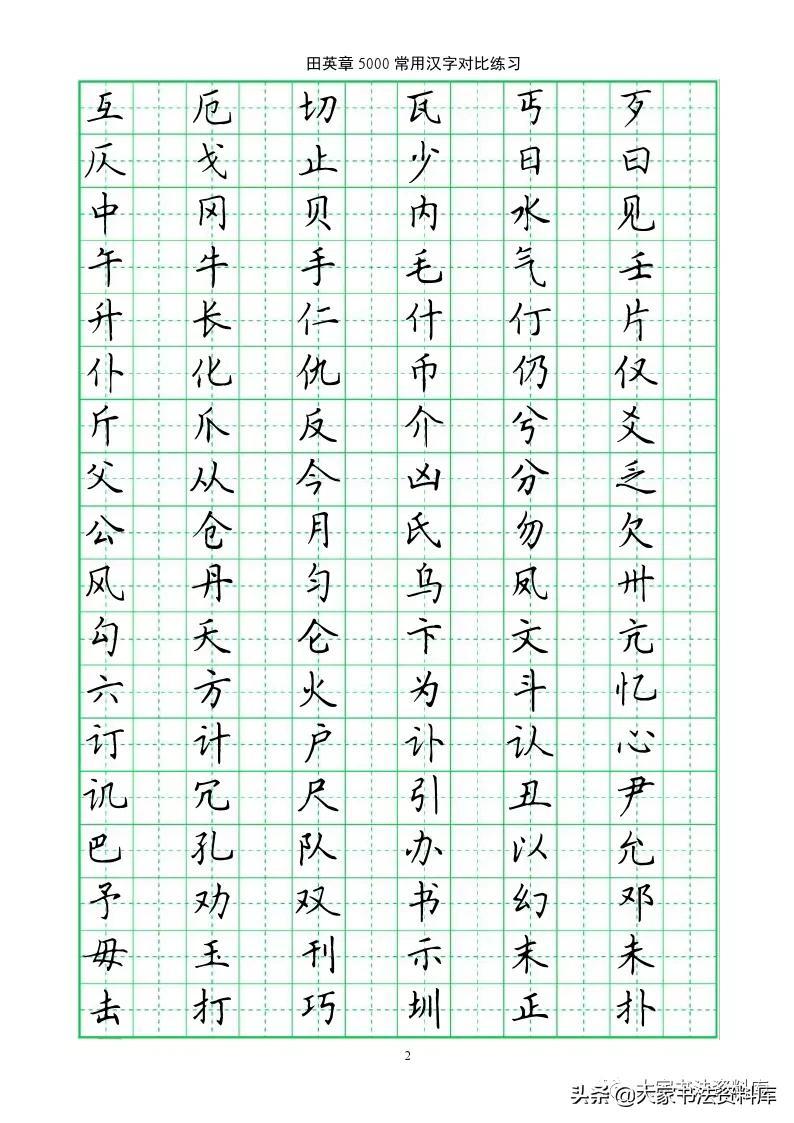 田英章 5000 常用汉字对比练习
互 厄 切 瓦 丐 歹
仄 戈 止 少 日 曰
中 冈 贝 内 水 见
午 牛 手 毛 气 壬
升 长 仁 什 仃 片
仆 化 仇 币 仍 仅
斤 爪 反 介 兮 爻
父 从 今 凶 分 乏
公 仓 月 氏 勿 欠
风 丹 匀 乌 凤 卅
勾 夭 仑 卞 文 亢
六 方 火 为 斗 忆
订 计 户 讣 认 心
讥 冗 尺 引 丑 尹
巴 孔 队 办 以 允
予 劝 双 书 幻 邓
毋 玉 刊 示 末 未
击 打 巧 圳 正 扑
2
大家书法资料库
头条 @大家书法资料库